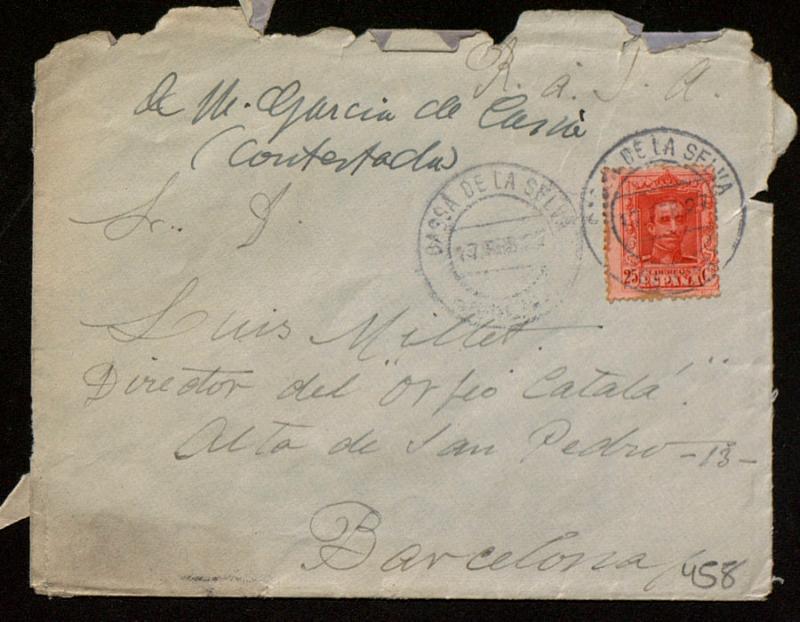 R. a. S. A.
de M. Garcia de
(Contestada)
CASSÀ DE LA SELVA
DE LA SELVA
Sr. D.
25 CORREOS C
ESPAÑA
Luis Millet.
Director del "Orfeó Catalá".
Alta de San Pedro -13-
Barcelona
458